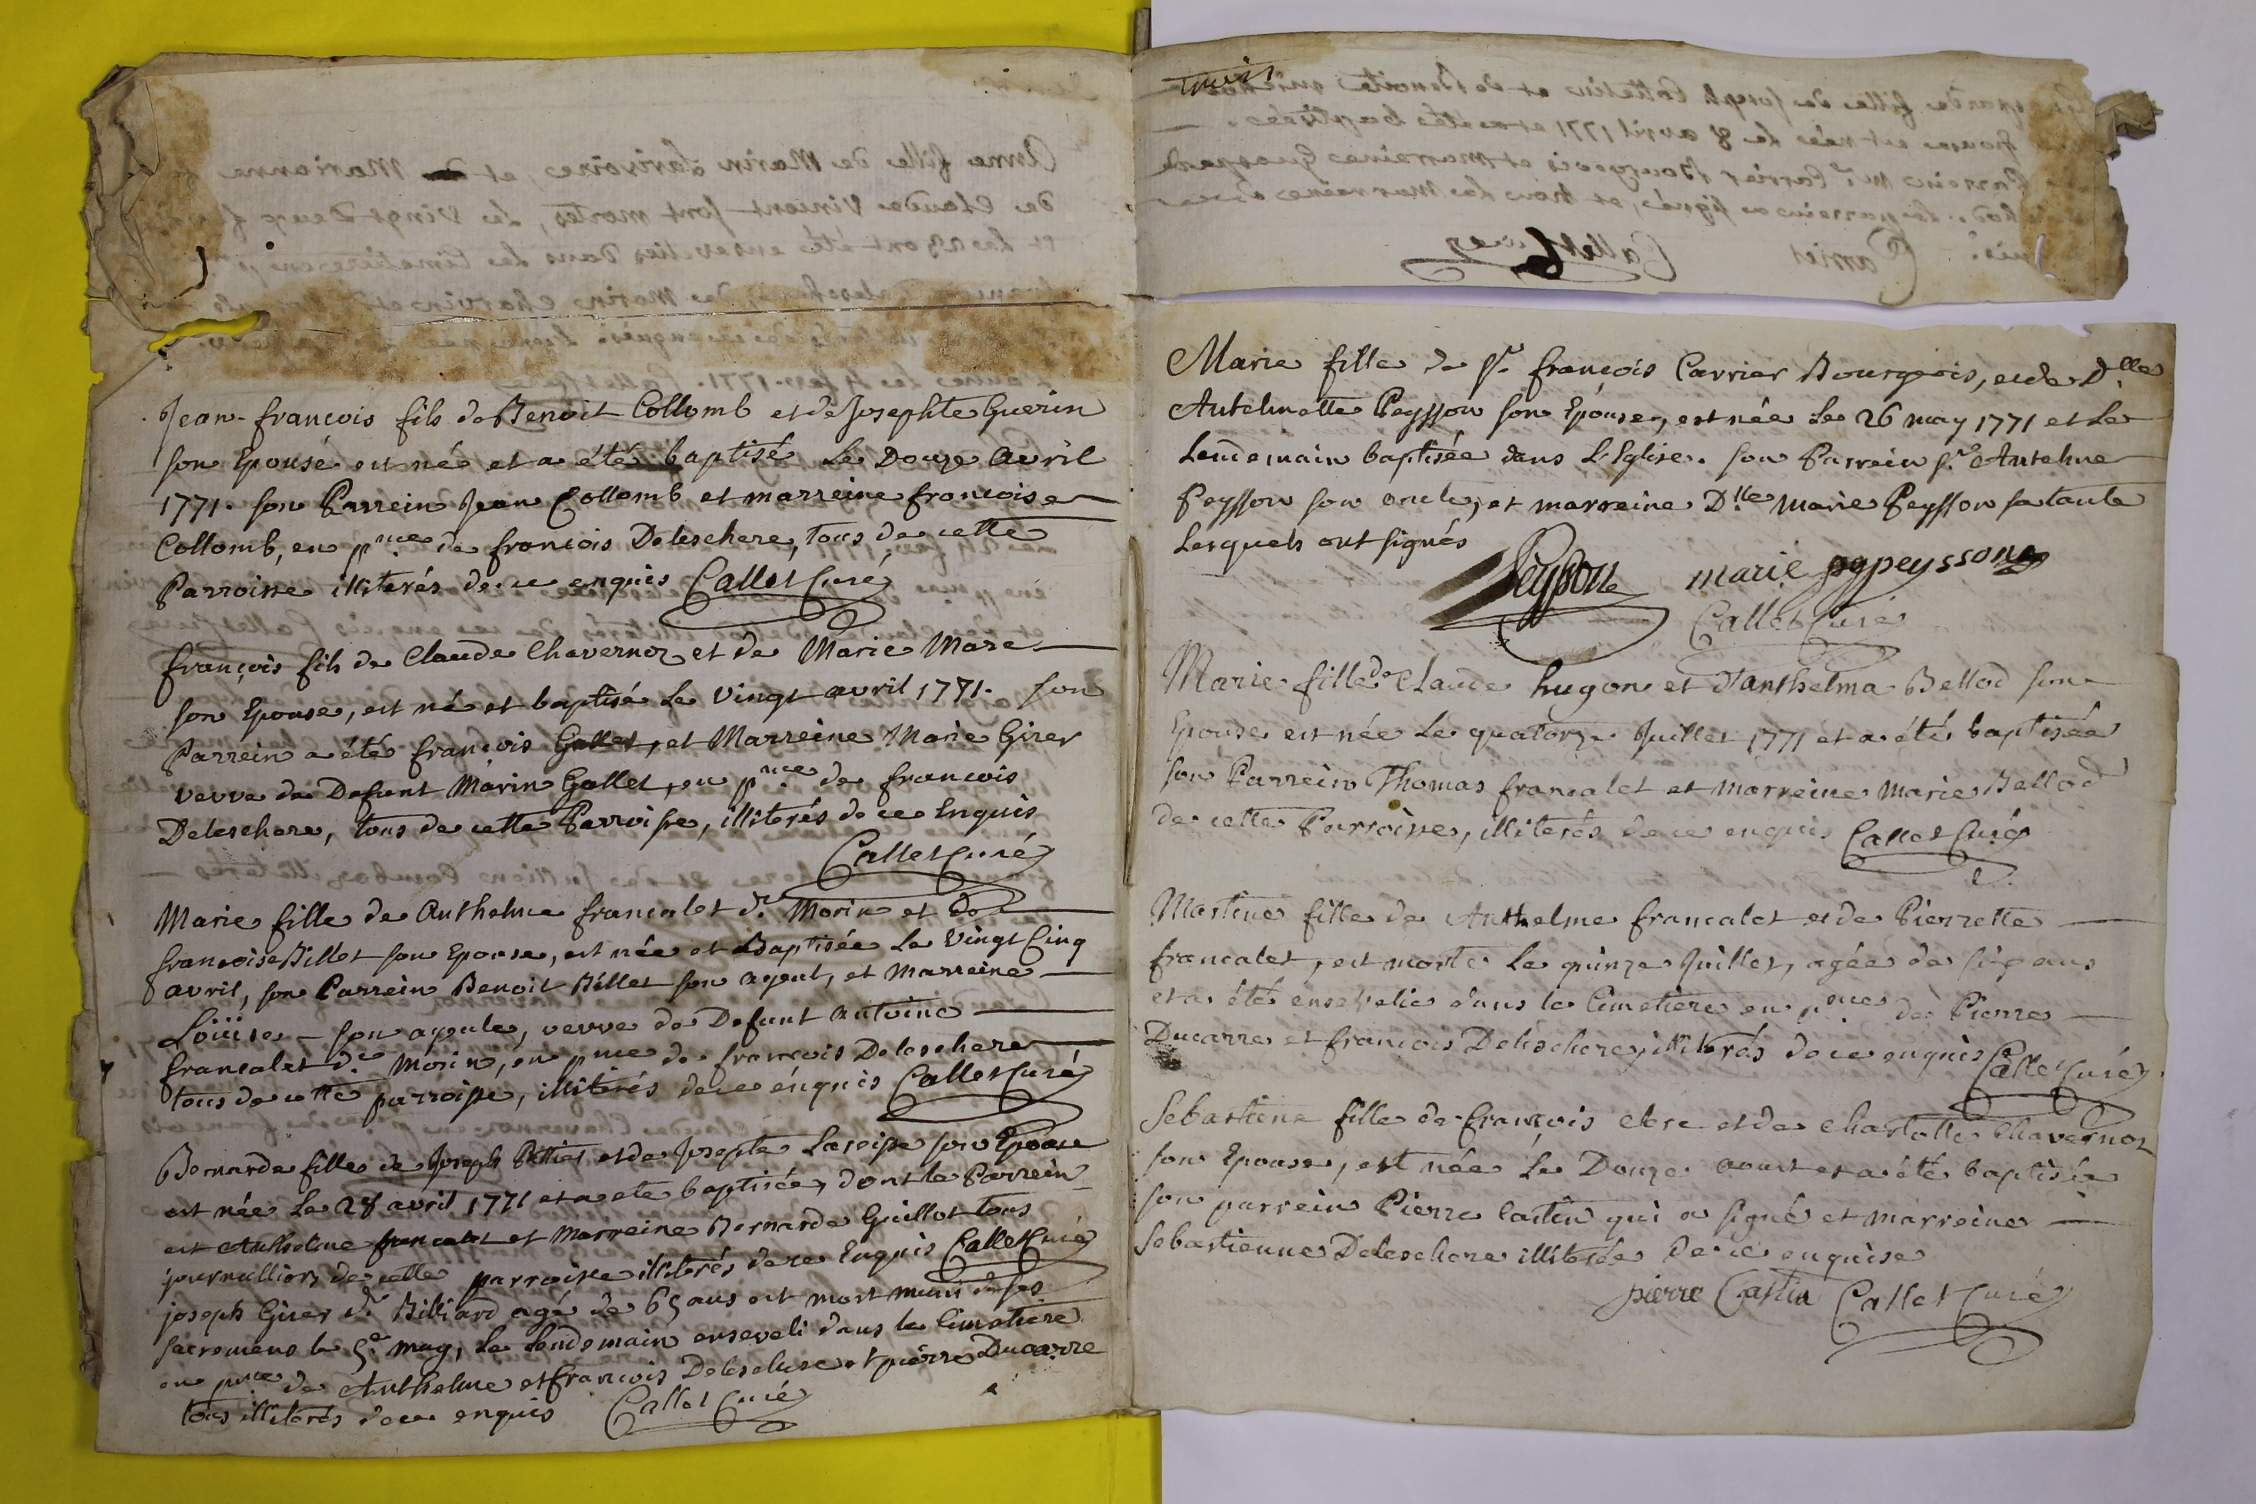 Jean-francois fils de Benoit Collomb et de Josephte Guerin
son Epouse est né et a été baptisé Le Douze Avril
1771. son Parrein Jean Collomb et marreine francoise
Collomb, en p.nce de francois Deleschere, tous de cette
Parroisse illiterés de ce enquis Callet Curé
françois fils de Claude Chavernoz et de Marie Mare
son Epouse, est né et baptisé Le Vingt avril 1771. son
Parrein a été francois Gallet, et Marreine Marie Girer
veuve de Defunt Marin Gallet, en p.nce de francois
Deleschere, tous de cette Parroisse, illiterés de ce Enquis
Callet Curé
Marie fille de Anthelme francalet d.t Morin et de
francoise Billet son Epouse, est née et Baptisée Le Vingt Cinq
avril, son Parrein Benoit Billet son ayeul, et Marreine
Loüise son ayeule, veuve de Defunt Antoine
francalet d.t Morin, en p.nce de francois Deleschere
tous de cette parroisse, illiterés de ce enquis Callet Curé
Bernarde fille de Joseph et de Josepte son Epouse
est née Le 28 avril 1771 et a été baptisée, dont le Parrein
est Anthelme francalet et Marreine Bernarde Guillot tous
journalliers de cette parroisse illiterés de ce Enquis Callet Curé
joseph Girer d.t Billiard agé de 65 ans est mort muni de ses
sacremens le 5.e may, Le Lendemain enseveli dans le Cimetiere
en p.nce de Anthelme et francois Deleschere et pierre Ducarre
tous illiterés de ce enquis Callet Curé
trois
Marie fille de S.r françois Carrier Bourgeois, et de D.lle
Antelmette Peysson son Epouse, est née Le 26 may 1771 et Le
Lendemain baptisée dans L'Eglise. son Parrein S.r Antelme
Peysson son oncle, et marreine D.lle Marie Peysson sa tante
Lesquels ont signés
Peysson marie peysson
Callet Curé
Marie fille de Claude hugon et d'anthelma Bellod son
Epouse est née Le quatorze Juillet 1771 et a été baptisée
son Parrein Thomas francalet et marreine Marie Bellod
de cette Parroisse, illiterés de ce enquis Callet Curé
Martine fille de Anthelme francalet et de Pierrette
francalet, est morte Le quinze Juillet, agée de six ans
et a été ensevelie dans le Cimetiere en p.nce de Pierre
Ducarre et francois Deleschere, illiterés de ce enquis Callet Curé
Sebastiene fille de françois Clere et de Charlotte Chavernoz
son Epouse, est née Le Douze aoust et a été baptisée
son parrein Pierre Castin qui a signé et marreine
Sebastienne Deleschere illiterée de ce enquise
pierre Castin Callet Curé